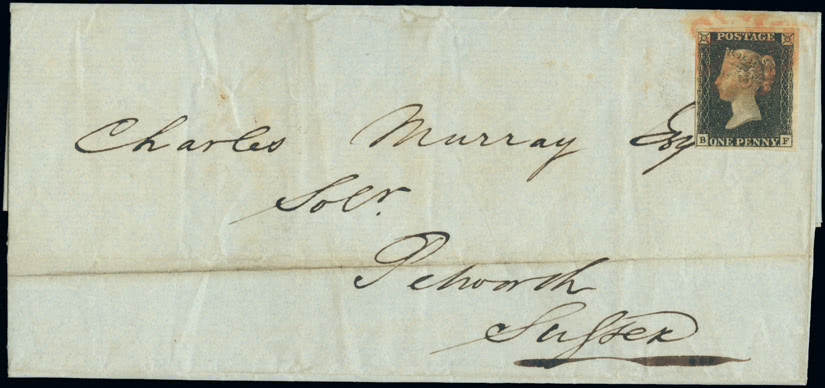 POSTAGE
B ONE PENNY F
Charles Murray Esq
Solr.
Petworth
Sussex